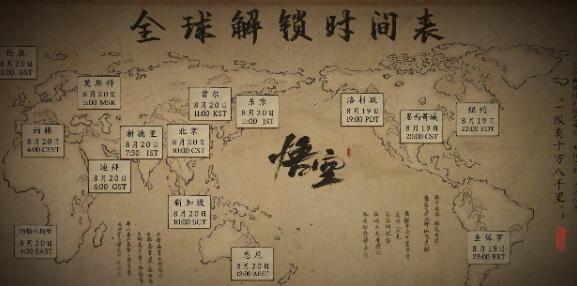 全球解锁时间表
伦敦
8月20日
3:00 BST
莫斯科
8月20日
5:00 MSK
首尔
8月20日
11:00 KST
东京
8月20日
11:00 JST
洛杉矶
8月19日
19:00 PDT
墨西哥城
8月19日
20:00 CST
纽约
8月19日
22:00 EDT
柏林
8月20日
4:00 CEST
新德里
8月20日
7:30 IST
北京
8月20日
10:00 CST
迪拜
8月20日
6:00 GST
悟空
新加坡
8月20日
10:00 SGT
约翰内斯堡
8月20日
4:00 SAST
悉尼
8月20日
12:00 AEST
圣保罗
8月19日
23:00 BRT
一纵有十万八千里